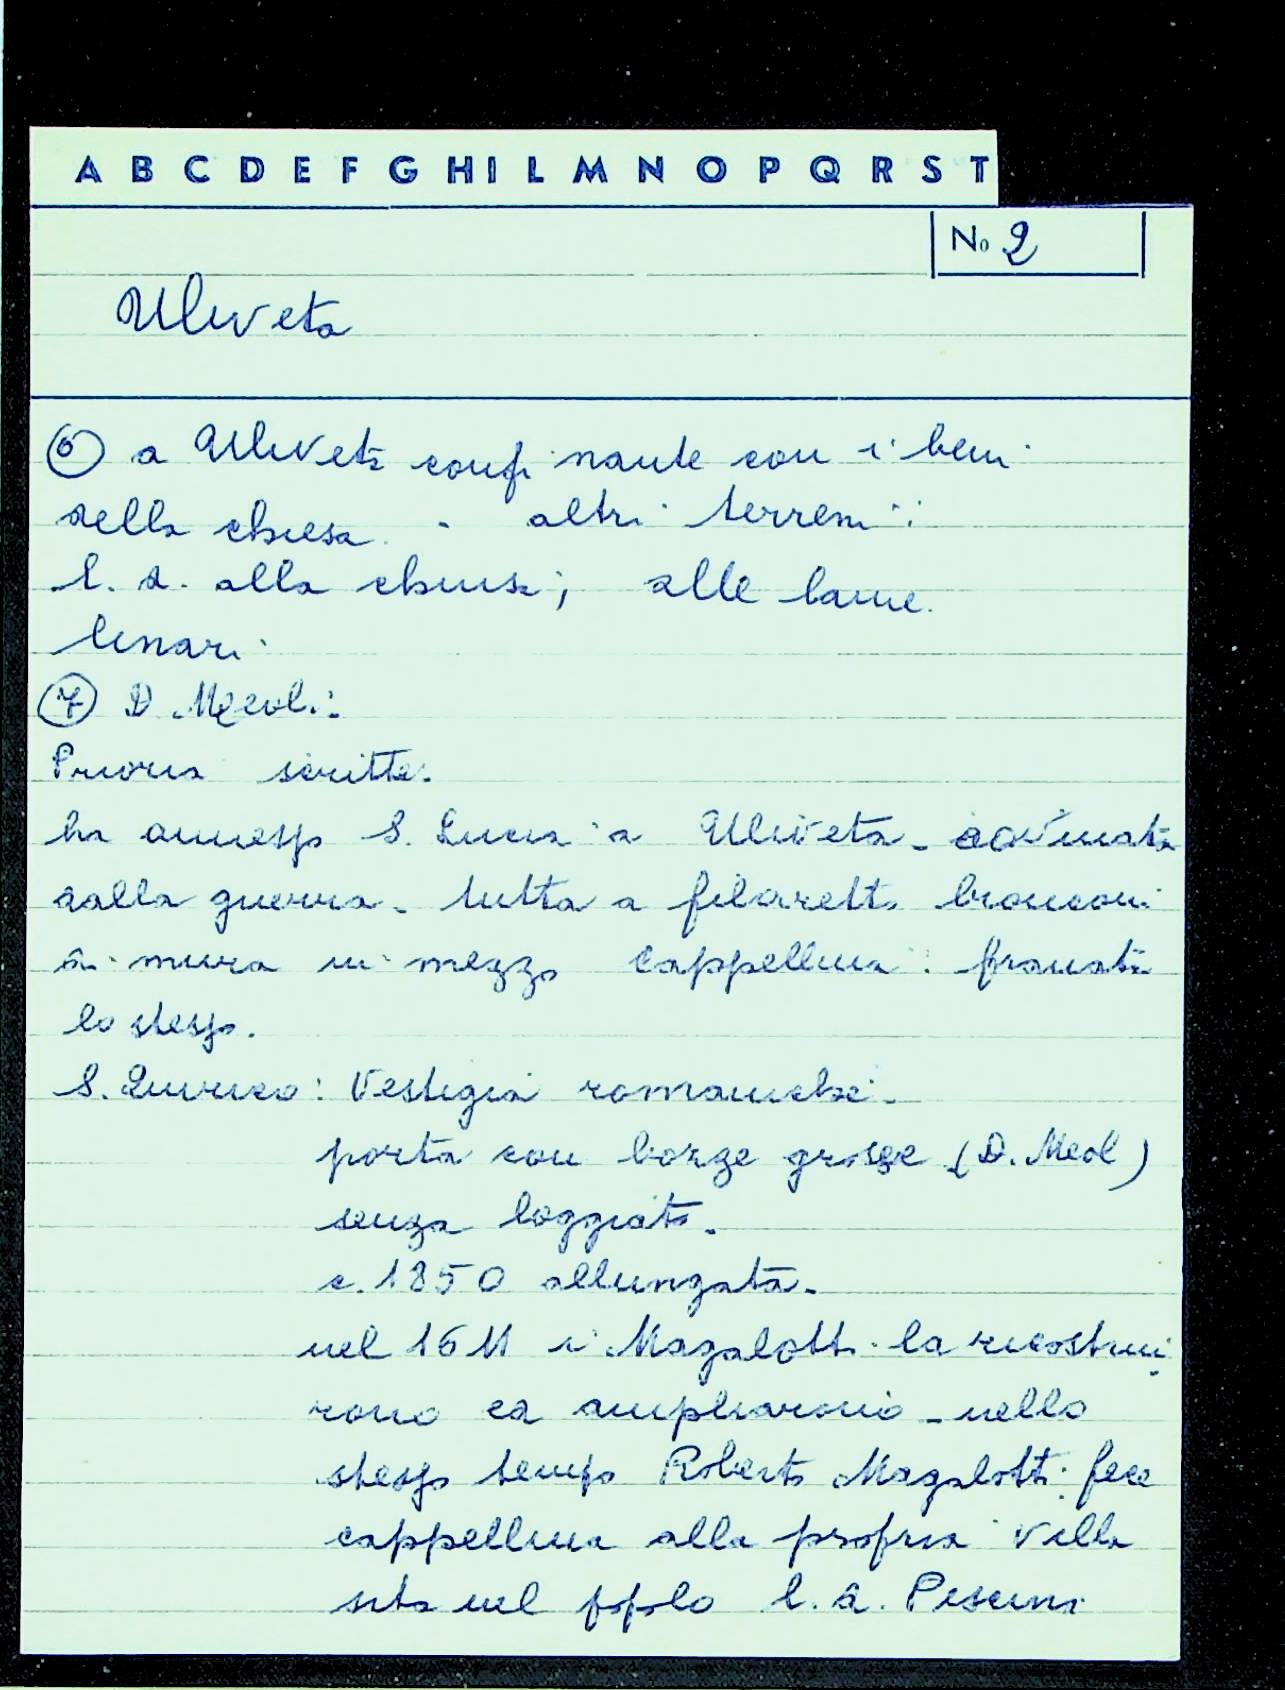 A B C D E F G H I L M N O P Q R S T
No 2
Uliveta
6 a Uliveta confinante con i beni
della chiesa - altri terreni:
l. d. alla chiusa; alle lame
linari
7 D. Meoli:
Prioria scritte.
ha annesso S. Lucia a Uliveta - rovinata
dalla guerra - tutta a filaretto bronconi
di mura in mezzo cappellina: franata
lo stesso.
S. Quirico: Vestigia romaniche.
porta con borze grosse (D. Meol)
senza loggiato.
c. 1850 allungata.
nel 1611 i Magalotti la ricostrui
rono ed ampliarono - nello
stesso tempo Roberto Magalotti fece
cappellina alla propria Villa
sita nel popolo l. d. Piscini